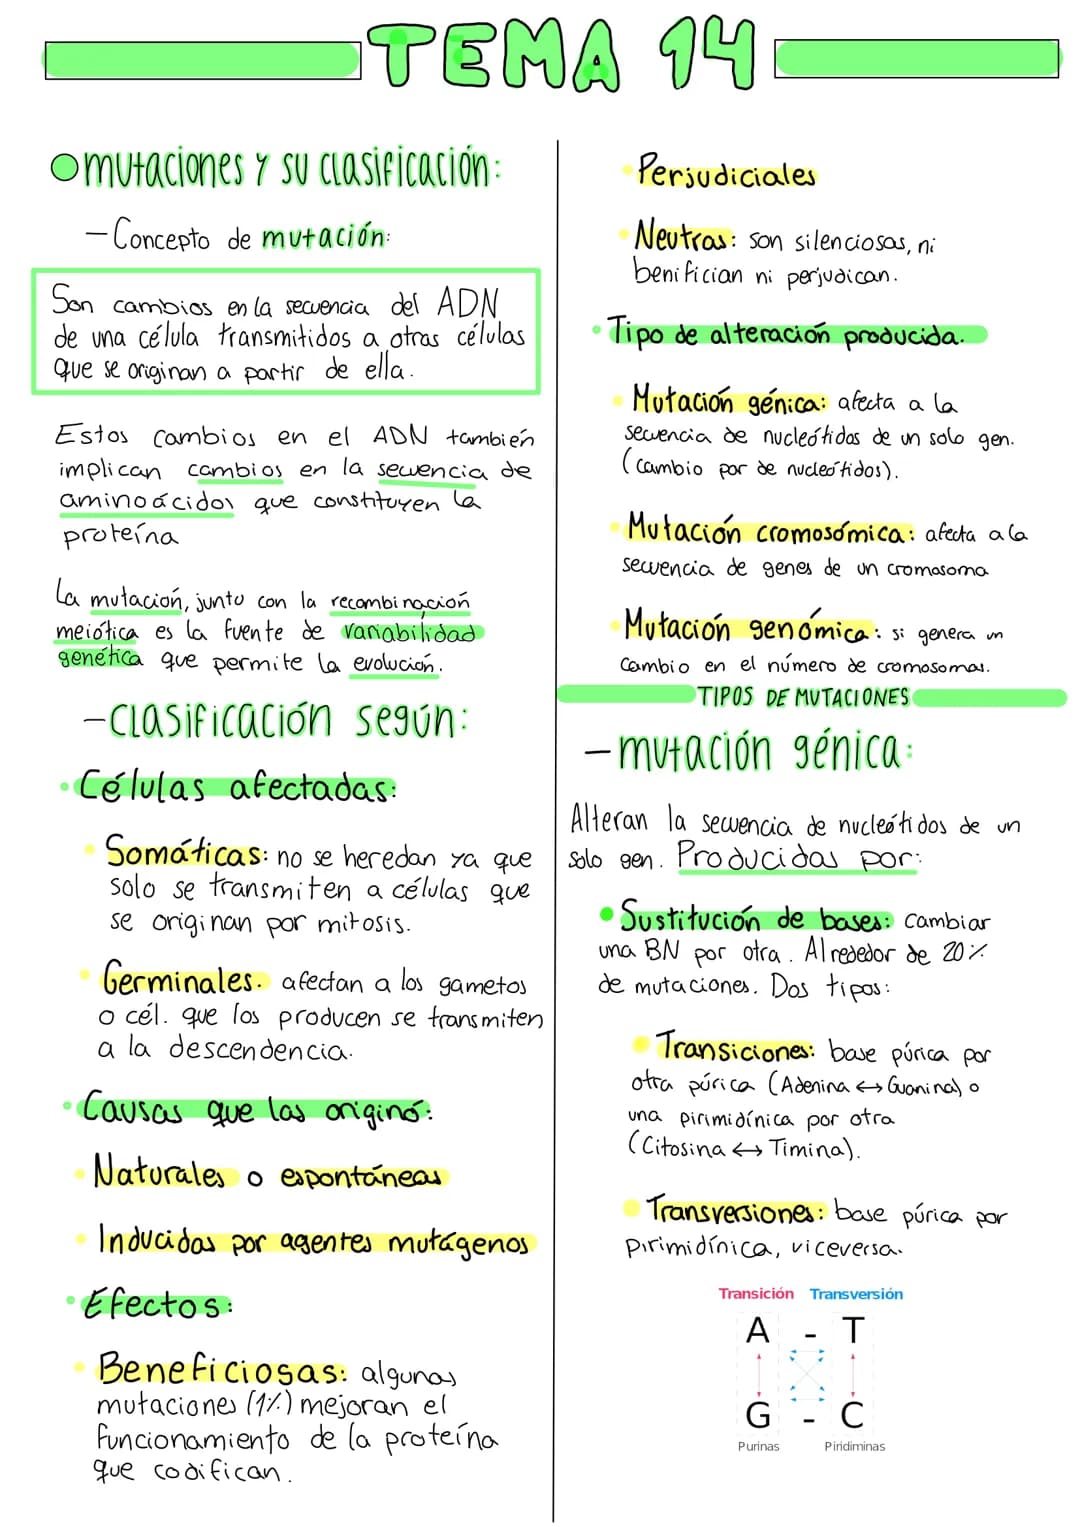 TEMA 14
mutaciones y su clasificación:
- Concepto de mutación:
Son cambios en la secuencia del ADN
de una célula transmitidos a otras células
que se originan a partir de ella.
Estos cambios en el ADN también
implican cambios en la secuencia de
aminoácidos que constituyen la
proteína
La mutación, junto con la recombinación
meiótica es la fuente de variabilidad
genética que permite la evolución.
- clasificación según:
· Células afectadas:
· Somáticas: no se heredan ya que
solo se transmiten a células que
se originan por mitosis.
· Germinales. afectan a los gametos
o cél. que los producen se transmiten
a la descendencia.
· Causas que las originó:
· Naturales o espontáneas
· Inducidas por agentes mutágenos
· Efectos:
· Beneficiosas: algunas
mutaciones (1%) mejoran el
funcionamiento de la proteína
que codifican.
· Perjudiciales
· Neutras: son silenciosas, ni
benifician ni perjudican.
· Tipo de alteración producida.
· Mutación génica: afecta a la
secuencia de nucleótidos de un solo gen.
(cambio por de nucleótidos).
· Mutación cromosómica: afecta a la
secuencia de genes de un cromosoma
· Mutación genómica: si genera un
cambio en el número de cromosomas.
TIPOS DE MUTACIONES
- mutación génica:
Alteran la secuencia de nucleótidos de un
solo gen. Producidas por:
• Sustitución de bases: cambiar
una BN por otra. Alrededor de 20%
de mutaciones. Dos tipos:
• Transiciones: base púrica por
otra púrica (Adenina ↔ Guanina) o
una pirimidínica por otra
(Citosina ↔ Timina).
• Transversiones: base púrica por
pirimidínica, viceversa.
Transición Transversión
A - T
G - C
Purinas Piridiminas